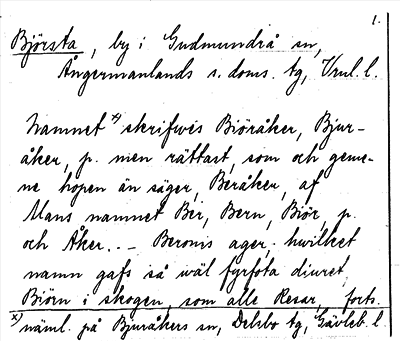 1.
Björsta, by i Gudmundrå sn,
Ångermanlands s. doms. tg, Vnl. l.
Namnet x) skrifwes Biöråker, Bjur-
åker, p. men rättast, som och geme-
ne hopen än säger, Beråker, af
Mans namnet Ber, Bern, Biör, p.
och Åker... – Beronis ager, hwilket
namn gafs så wäl fyrfota diuret
Biörn i skogen, som alle Resar, forts.
x) näml. på Bjuråkers sn, Delsbo tg, Gävleb. l